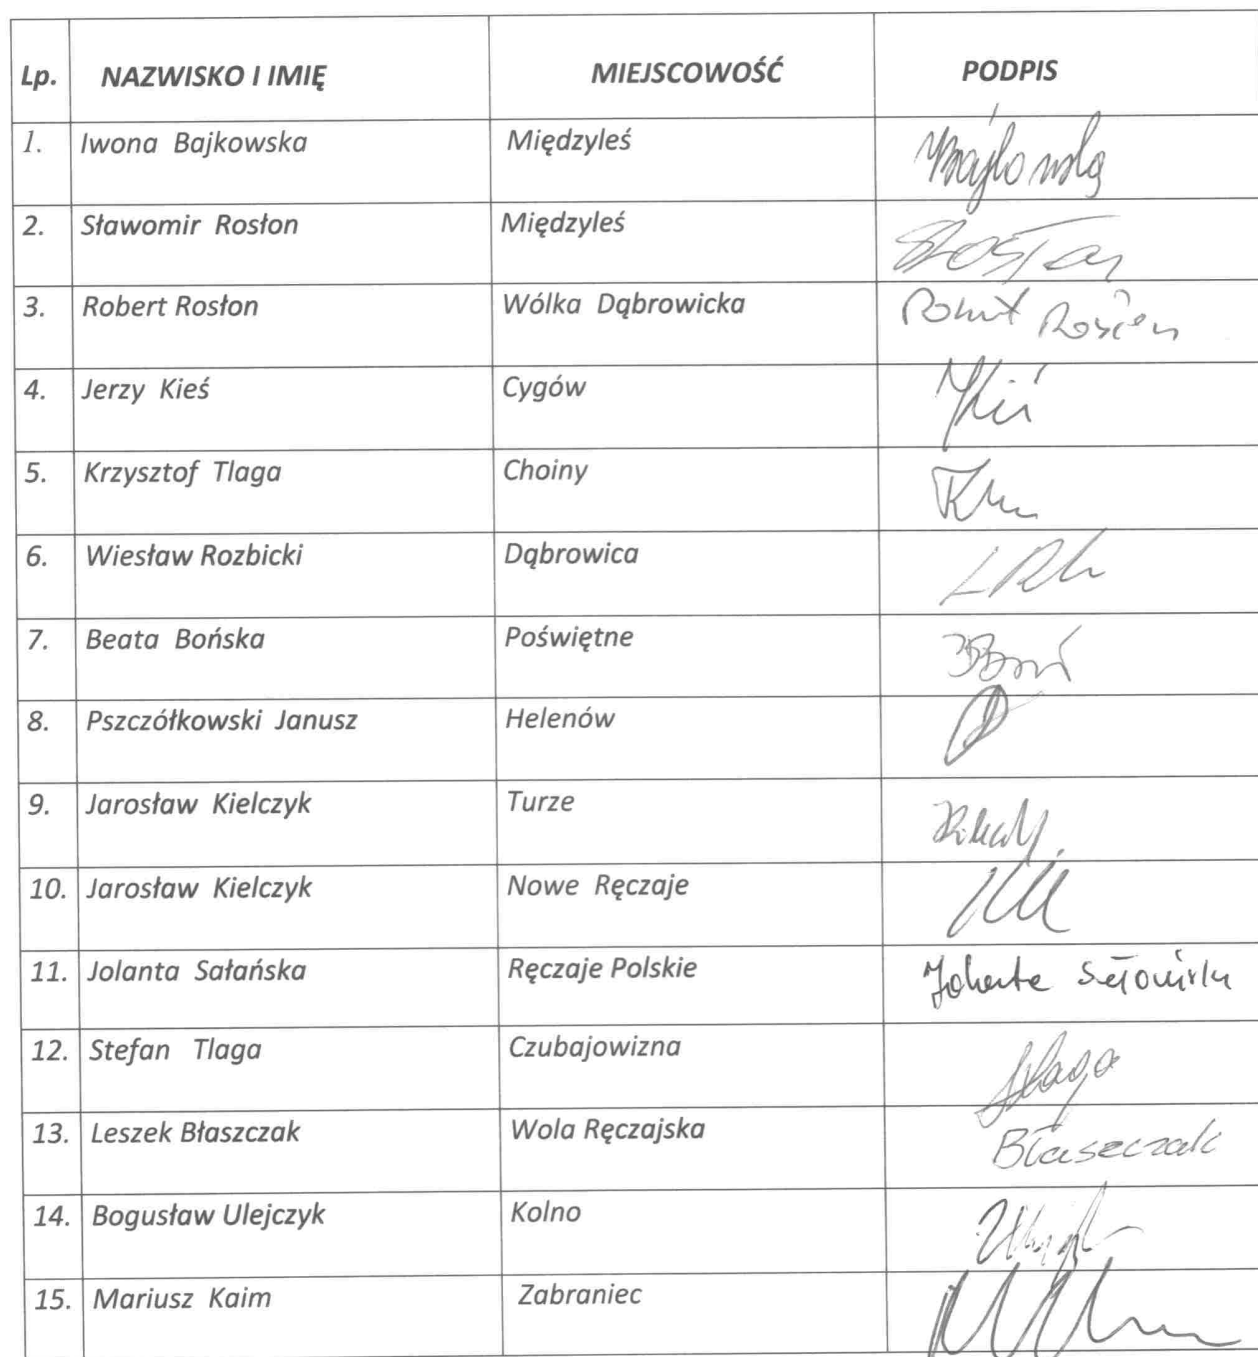 Lp. NAZWISKO I IMIĘ MIEJSCOWOŚĆ PODPIS
1. Iwona Bajkowska Międzyleś
2. Sławomir Rosłon Międzyleś
3. Robert Rosłon Wólka Dąbrowicka
4. Jerzy Kieś Cygów
5. Krzysztof Tlaga Choiny
6. Wiesław Rozbicki Dąbrowica
7. Beata Bońska Poświętne
8. Pszczółkowski Janusz Helenów
9. Jarosław Kielczyk Turze
10. Jarosław Kielczyk Nowe Ręczaje
11. Jolanta Sałańska Ręczaje Polskie Jolanta Sałańska
12. Stefan Tlaga Czubajowizna
13. Leszek Błaszczak Wola Ręczajska Błaszczak
14. Bogusław Ulejczyk Kolno
15. Mariusz Kaim Zabraniec